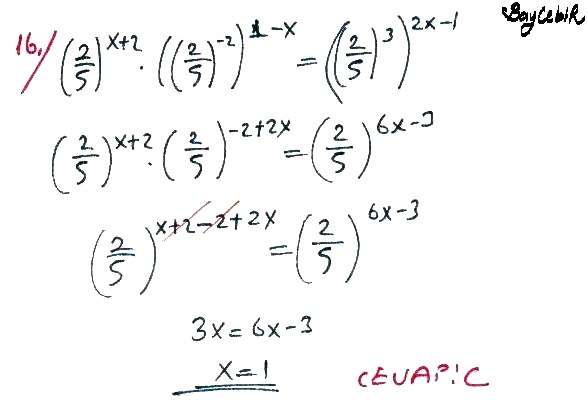 BayCebiR
16. (2/5)^(x+2) · ((2/5)^(-2))^(1-x) = ((2/5)^3)^(2x-1)
(2/5)^(x+2) · (2/5)^(-2+2x) = (2/5)^(6x-3)
(2/5)^(x+2-2+2x) = (2/5)^(6x-3)
3x = 6x-3
x = 1
CEVAP: C